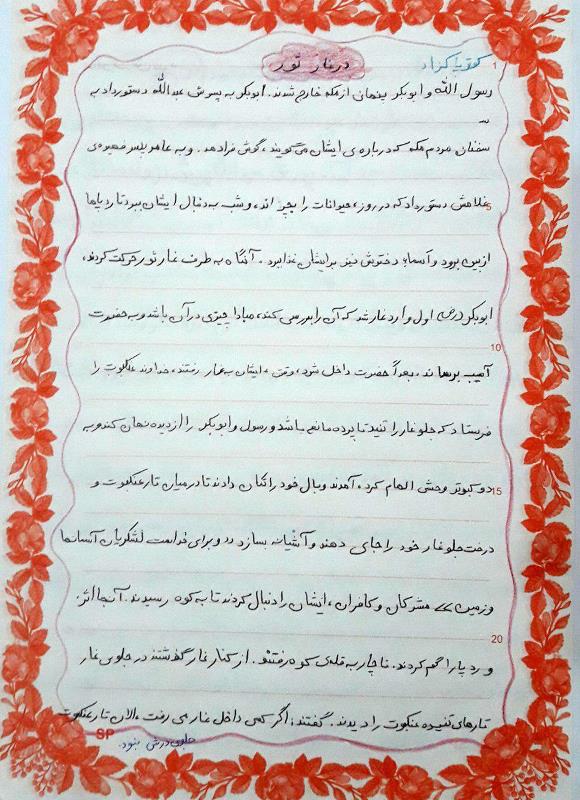 در غار ثور
رسول الله و ابوبکر پنهان از مکه خارج شدند. ابوبکر به پسرش عبدالله دستور داد به
سخنان مردم مکه که درباره‌ی ایشان می‌گویند، گوش فرا دهد. و به عامر بن فهیره‌ی
غلامش دستور داد که در روز، حیوانات را بچراند، و شب به دنبال ایشان ببرد تا رد پاها
از بین برود و آسماء دخترش نیز برایشان غذا ببرد. آنگاه به طرف غار ثور حرکت کردند،
ابوبکر (رض) اول وارد غار شد که آن را بررسی کند، مبادا چیزی در آن باشد و به حضرت
آسیب برساند، بعداً حضرت داخل شود، وقتی ایشان به غار رفتند، خداوند عنکبوت را
فرستاد که جلو غار را تنید تا پرده مانع باشد و رسول و ابوبکر را از دیده نهان کند و به
دو کبوتر وحشی الهام کرد، آمدند و بال خود را تکان دادند تا در میان تار عنکبوت و
درخت جلو غار خود را جای دهند و آشیانه بسازند و برای خداست لشکریان آسمانها
و زمین مشرکان و کافران، ایشان را دنبال کردند تا به کوه رسیدند. آنجا اثر
و رد پا را گم کردند. ناچار به قله‌ی کوه رفتند. از کنار غار گذشتند در جلوی غار
تارهای تنیده عنکبوت را دیدند. گفتند: اگر کسی داخل غار می رفت، الان تار عنکبوت
جلوی درش نبود.
1
5
10
15
20
SP